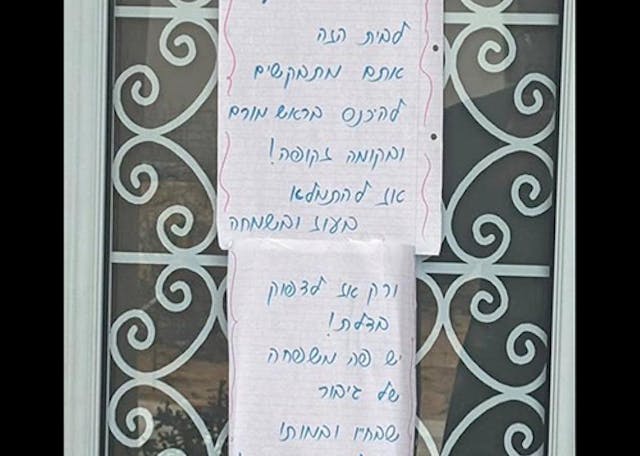 לבית הזה
אתם מתבקשים
להיכנס בראש מורם
ובקומה זקופה!
אז להתמלא
בעוז ובשמחה
ורק אז לדפוק
בדלת!
יש פה משפחה
של גיבור
שבחייו ובמותו